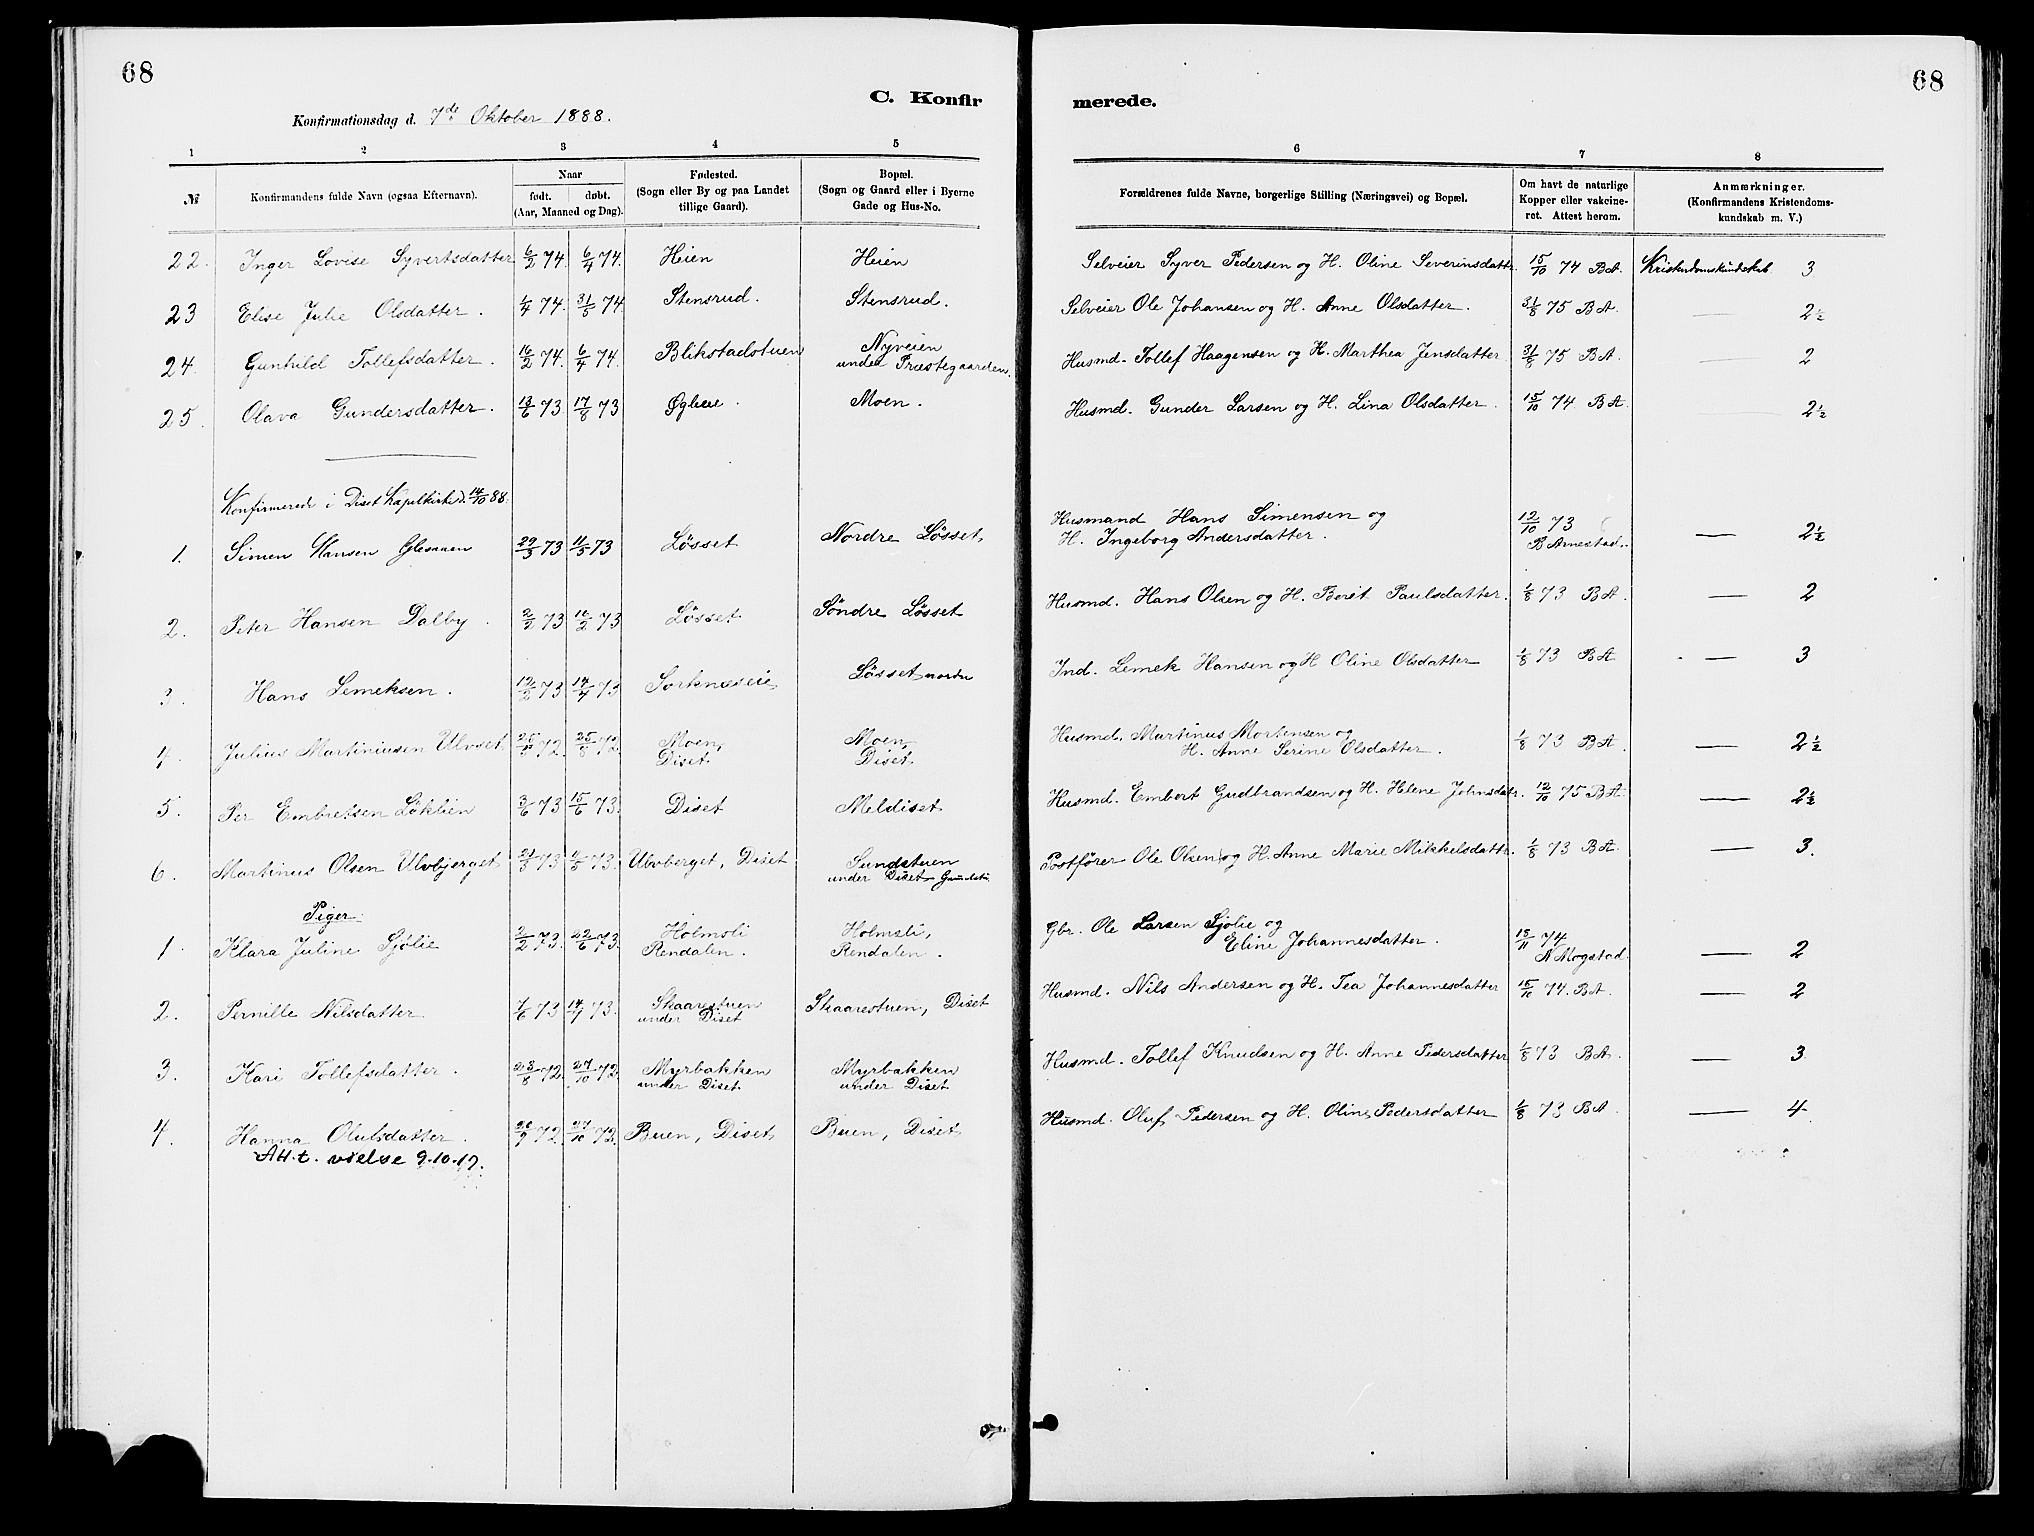 68
68
C. Konfir
merede.
Konfirmationsdag d. 7de Oktober 1888.
1 2 3 4 5 6 7 8
№ Konfirmandens fulde Navn (ogsaa Efternavn).
Naar
født. døbt.
(Aar, Maaned og Dag).
Fødested.
(Sogn eller By og paa Landet
tillige Gaard).
Bopæl.
(Sogn og Gaard eller i Byerne
Gade og Hus-No.
Forældrenes fulde Navne, borgerlige Stilling (Næringsvei) og Bopæl.
Om havt de naturlige
Kopper eller vakcine-
ret. Attest herom.
Anmærkninger.
(Konfirmandens Kristendoms-
kundskab m. V.)
22. Inger Lovise Syvertsdatter 6/2 74. 6/4 74. Heien Heien Selveier Syver Pedersen og H. Oline Severinsdattr. 15/10 74 BA. Kristendomskundskab 3
23 Elise Julie Olsdatter. 1/4 74. 31/5 74. Stensrud. Stensrud. Selveier Ole Johansen og H. Anne Olsdatter. 31/8 75 BA. — 2½
24. Gunhild Tollefsdatter. 16/2 74. 6/4 74. Blikstadstuen Nyveien
under Præstegaarden. Husmd. Tollef Haagensen og H. Marthea Jensdatter 31/8 75 BA. — 2
25. Olava Gundersdatter. 13/6 73. 17/8 73 Øgleie. Moen. Husmd. Gunder Larsen og H. Lina Olsdatter. 15/10 74 BA. — 2½
Konfirmerede i Diset Kapelkirke d. 14/10 88.
1. Simen Hansen Glesaaen 29/3 73 11/5 73 Løsset Nordre Løsset, Husmand Hans Simensen og
H. Ingeborg Andersdatter. 12/10 73
B Arnestad. — 2½
2. Peter Hansen Dalby. 2/2 73 16/2 73 Løsset Søndre Løsset Husmd. Hans Olsen og H. Borit Paulsdatter. 1/8 73 BA. — 2
3. Hans Lemeksen. 12/2 73 14/4 73 Sorknæseie, Løsset nordre Ind. Lemek Hansen og H Oline Olsdatter 1/8 73 BA — 3
4. Julius Martiniusen Ulvset 25/5 72. 25/8 72. Moen,
Diset Moen,
Diset Husmd. Martinus Mortensen og
H. Anne Serine Olsdatter. 1/8 73 BA. — 2½
5. Per Embretsen Løklien 3/6 73 15/6 73. Diset Meldiset Husmd. Embert Gudbrandsen og H. Helene Johnsdatr. 12/10 75 BA. — 2½
6. Martinus Olsen Ulvbjerget 21/3 73. 11/5 73. Ulvberget, Diset Sundstuen
under Diset Postfører Ole Olsen og H. Anne Marie Mikkelsdattr. 1/8 73 BA. — 3.
Piger:
1. Klara Juline Sjølie 2/2 73. 22/6 73. Holmsli
Rendalen. Holmsli,
Rendalen. Gbr. Ole Larsen Sjølie og
Eline Johannesdatter. 18/11 74
A Mogstad. — 2
2. Pernille Nilsdatter 7/6 73 14/9 73. Skaarestuen
under Diset Skaarestuen, Diset Husmd. Nils Andersen og H. Tea Johannesdatter 15/10 74. BA. — 2
3. Kari Tollefsdatter. 23/8 72. 27/10 72. Myrbakken
under Diset. Myrbakken
under Diset Husmd. Tollef Knudsen og H. Anne Pedersdatter 1/8 73 BA. — 3
4. Hanna Olufsdatter. 20/9 72 27/10 72. Buen, Diset, Buen, Diset Husmd. Oluf Pedersen og H. Oline Pedersdatter 1/8 73 BA. — 4
Att. t. vielse 9.10.19.